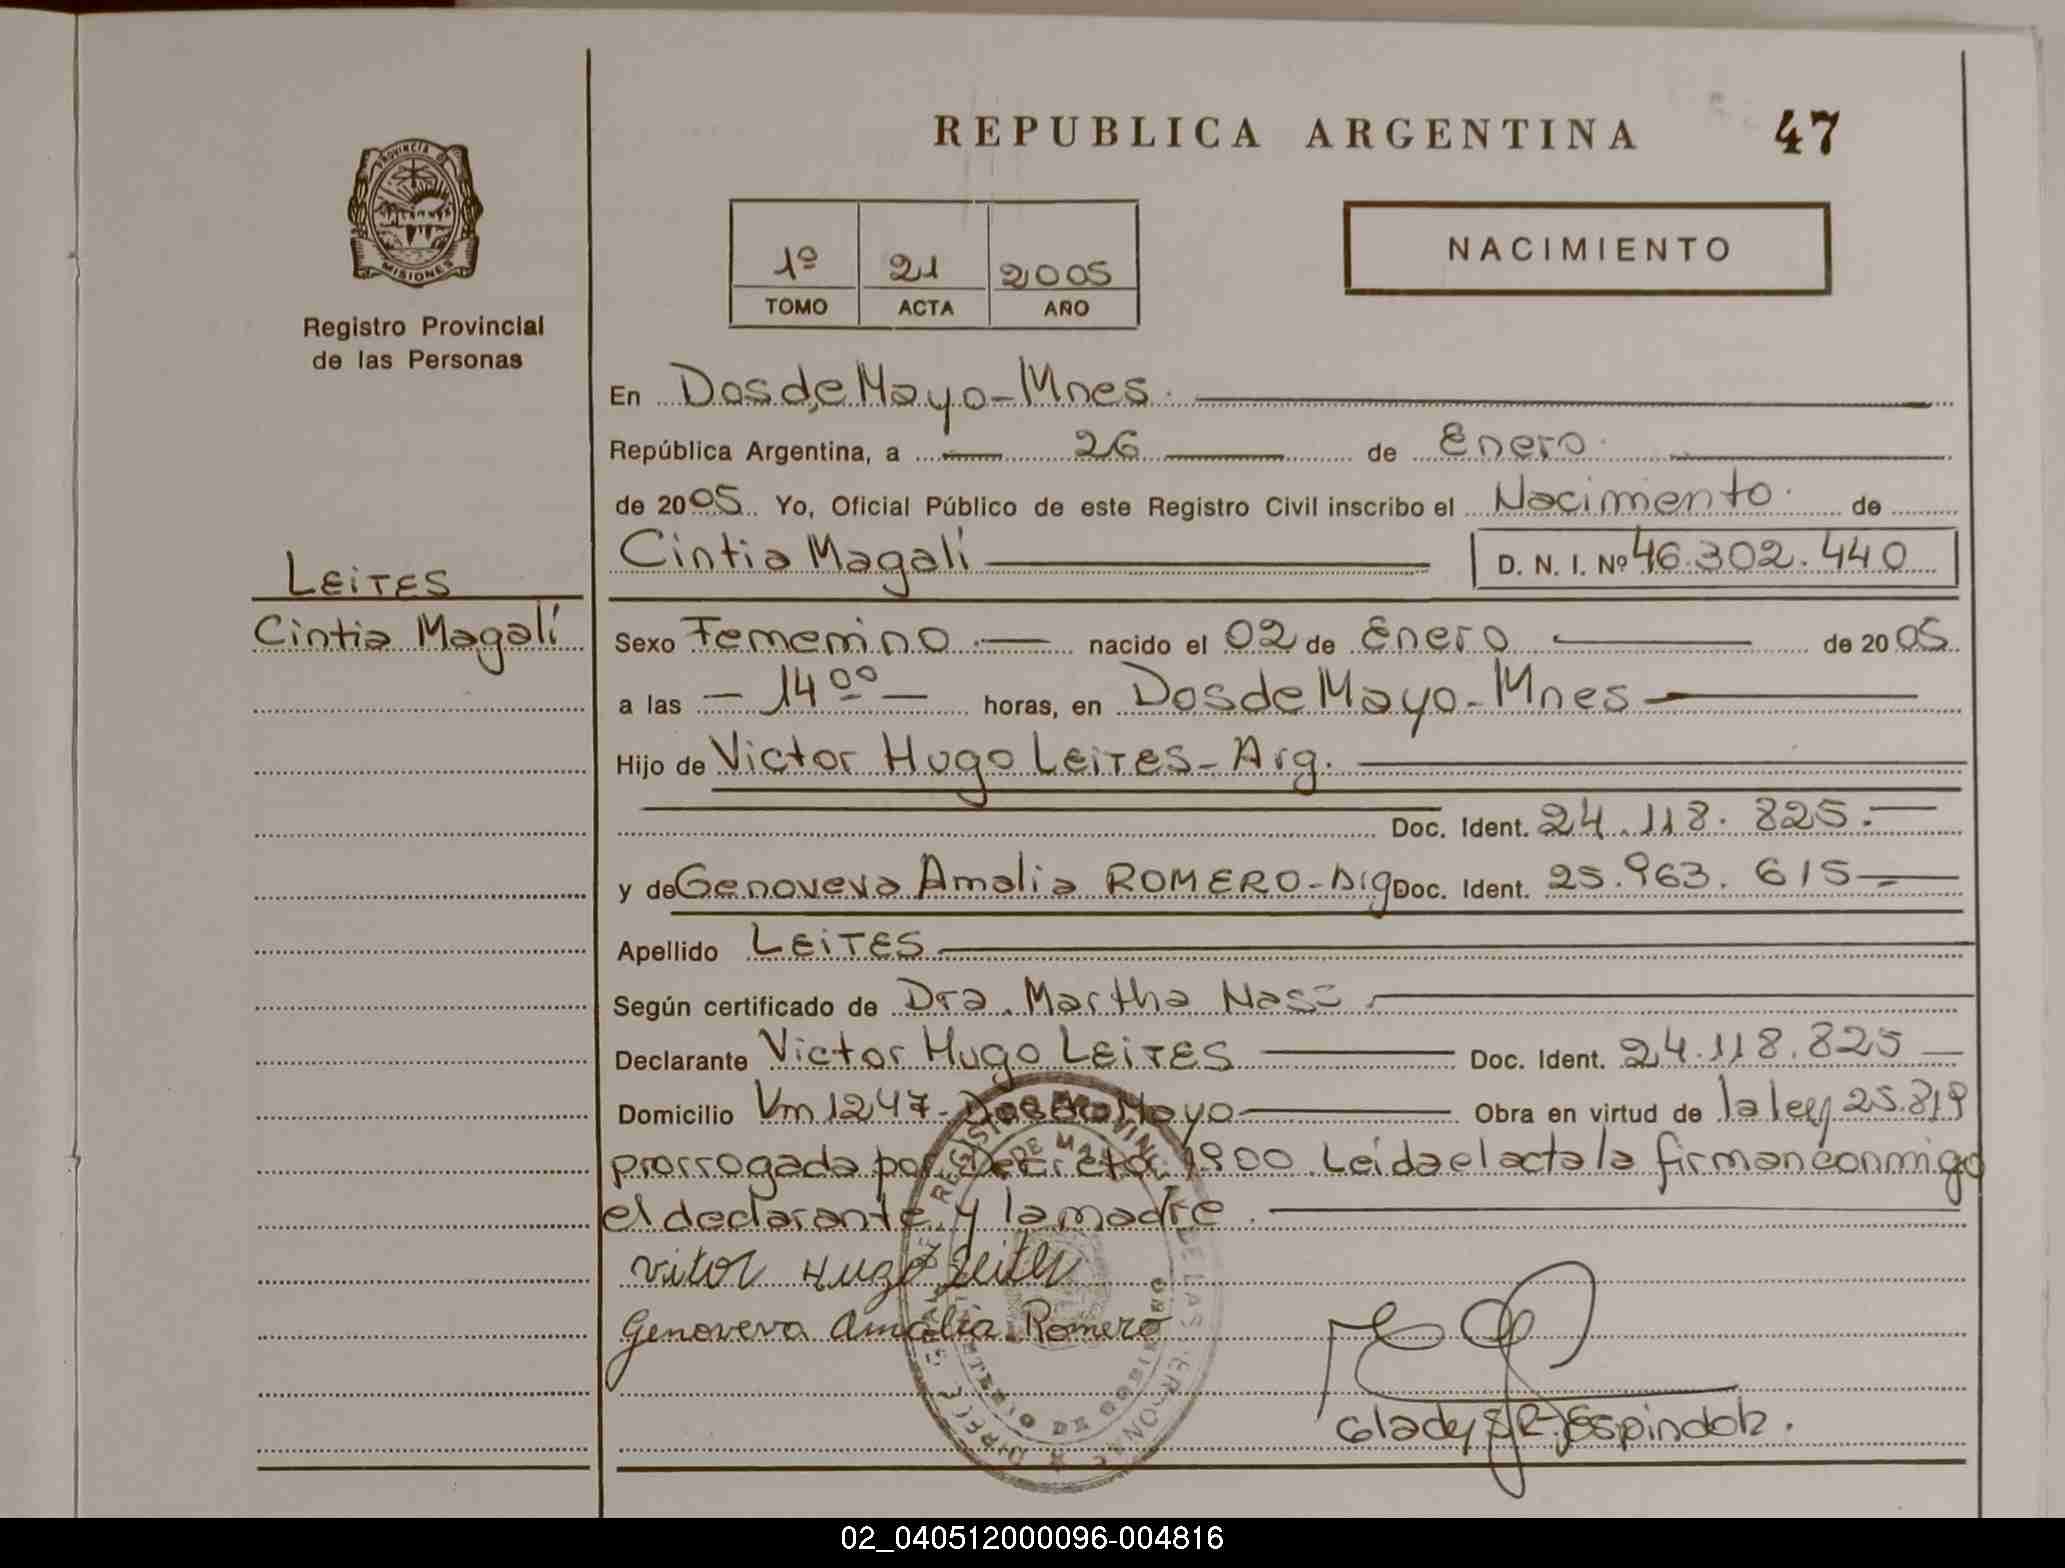 REPUBLICA ARGENTINA 47
PROVINCIA D
MISIONES
Registro Provincial
de las Personas
1º 21 2005
TOMO ACTA AÑO
NACIMIENTO
LEITES
Cintia Magalí
En Dos de Mayo - Mnes.
República Argentina, a 26 de Enero.
de 2005. Yo, Oficial Público de este Registro Civil inscribo el Nacimiento. de
Cintia Magalí D. N. I. Nº 46.302.440
Sexo Femenino nacido el 02 de Enero de 2005
a las - 14 00 - horas, en Dos de Mayo - Mnes
Hijo de Victor Hugo LEITES - Arg.
Doc. Ident. 24.118.825.-
y de Genoveva Amalia ROMERO - Arg Doc. Ident. 25.963.615
Apellido LEITES
Según certificado de Dra. Martha
Declarante Victor Hugo LEITES Doc. Ident. 24.118.825
Domicilio Vm 1247 - Dos de Mayo Obra en virtud de la ley 25.819
prorrogada por Decreto 1900 Leída el acta la firman conmigo
el declarante y la madre.
Vitor Hugo Leites
Genoveva Amalia Romero
Gladys R. Espindola.
02_040512000096-004816